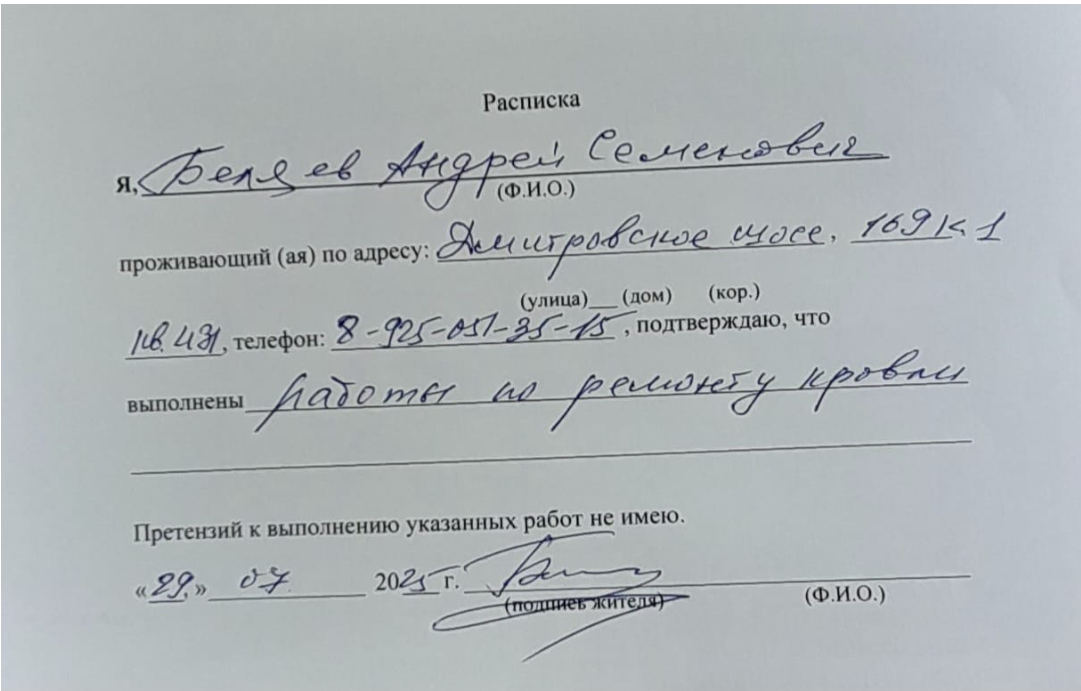 Расписка
Я, Беляев Андрей Семенович
(Ф.И.О.)
проживающий (ая) по адресу: Дмитровское шосе, 169 к 1
(улица)__ (дом) (кор.)
кв. 431, телефон: 8-925-051-35-15, подтверждаю, что
выполнены работы по ремонту кровли
Претензий к выполнению указанных работ не имею.
«29.» 07. 2025 г.
(подпись жителя) (Ф.И.О.)